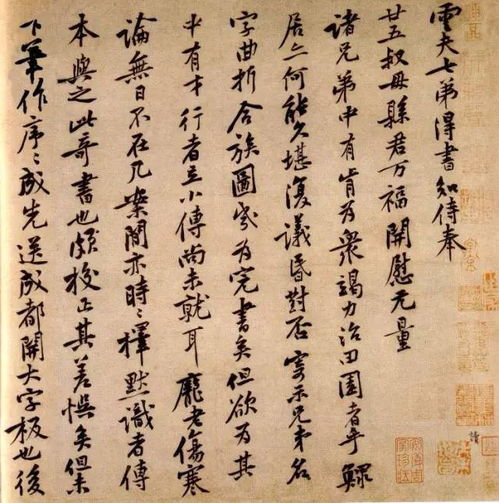 雲夫七弟得書知侍奉
廿五叔母縣君万福開慰无量
諸兄弟中有肯為衆竭力治田園者乎鰥
居亦何能久堪復議昏對否寄示兄弟名
字曲折合族圖寥為完書矣但欲為其
中有才行者立小傳尚未就耳龐老傷寒
論無日不在几案間亦時〻擇默識者傳
本與之此奇書也頗校正其差悞矣但未
下筆作序〻成先送成都開大字板也後